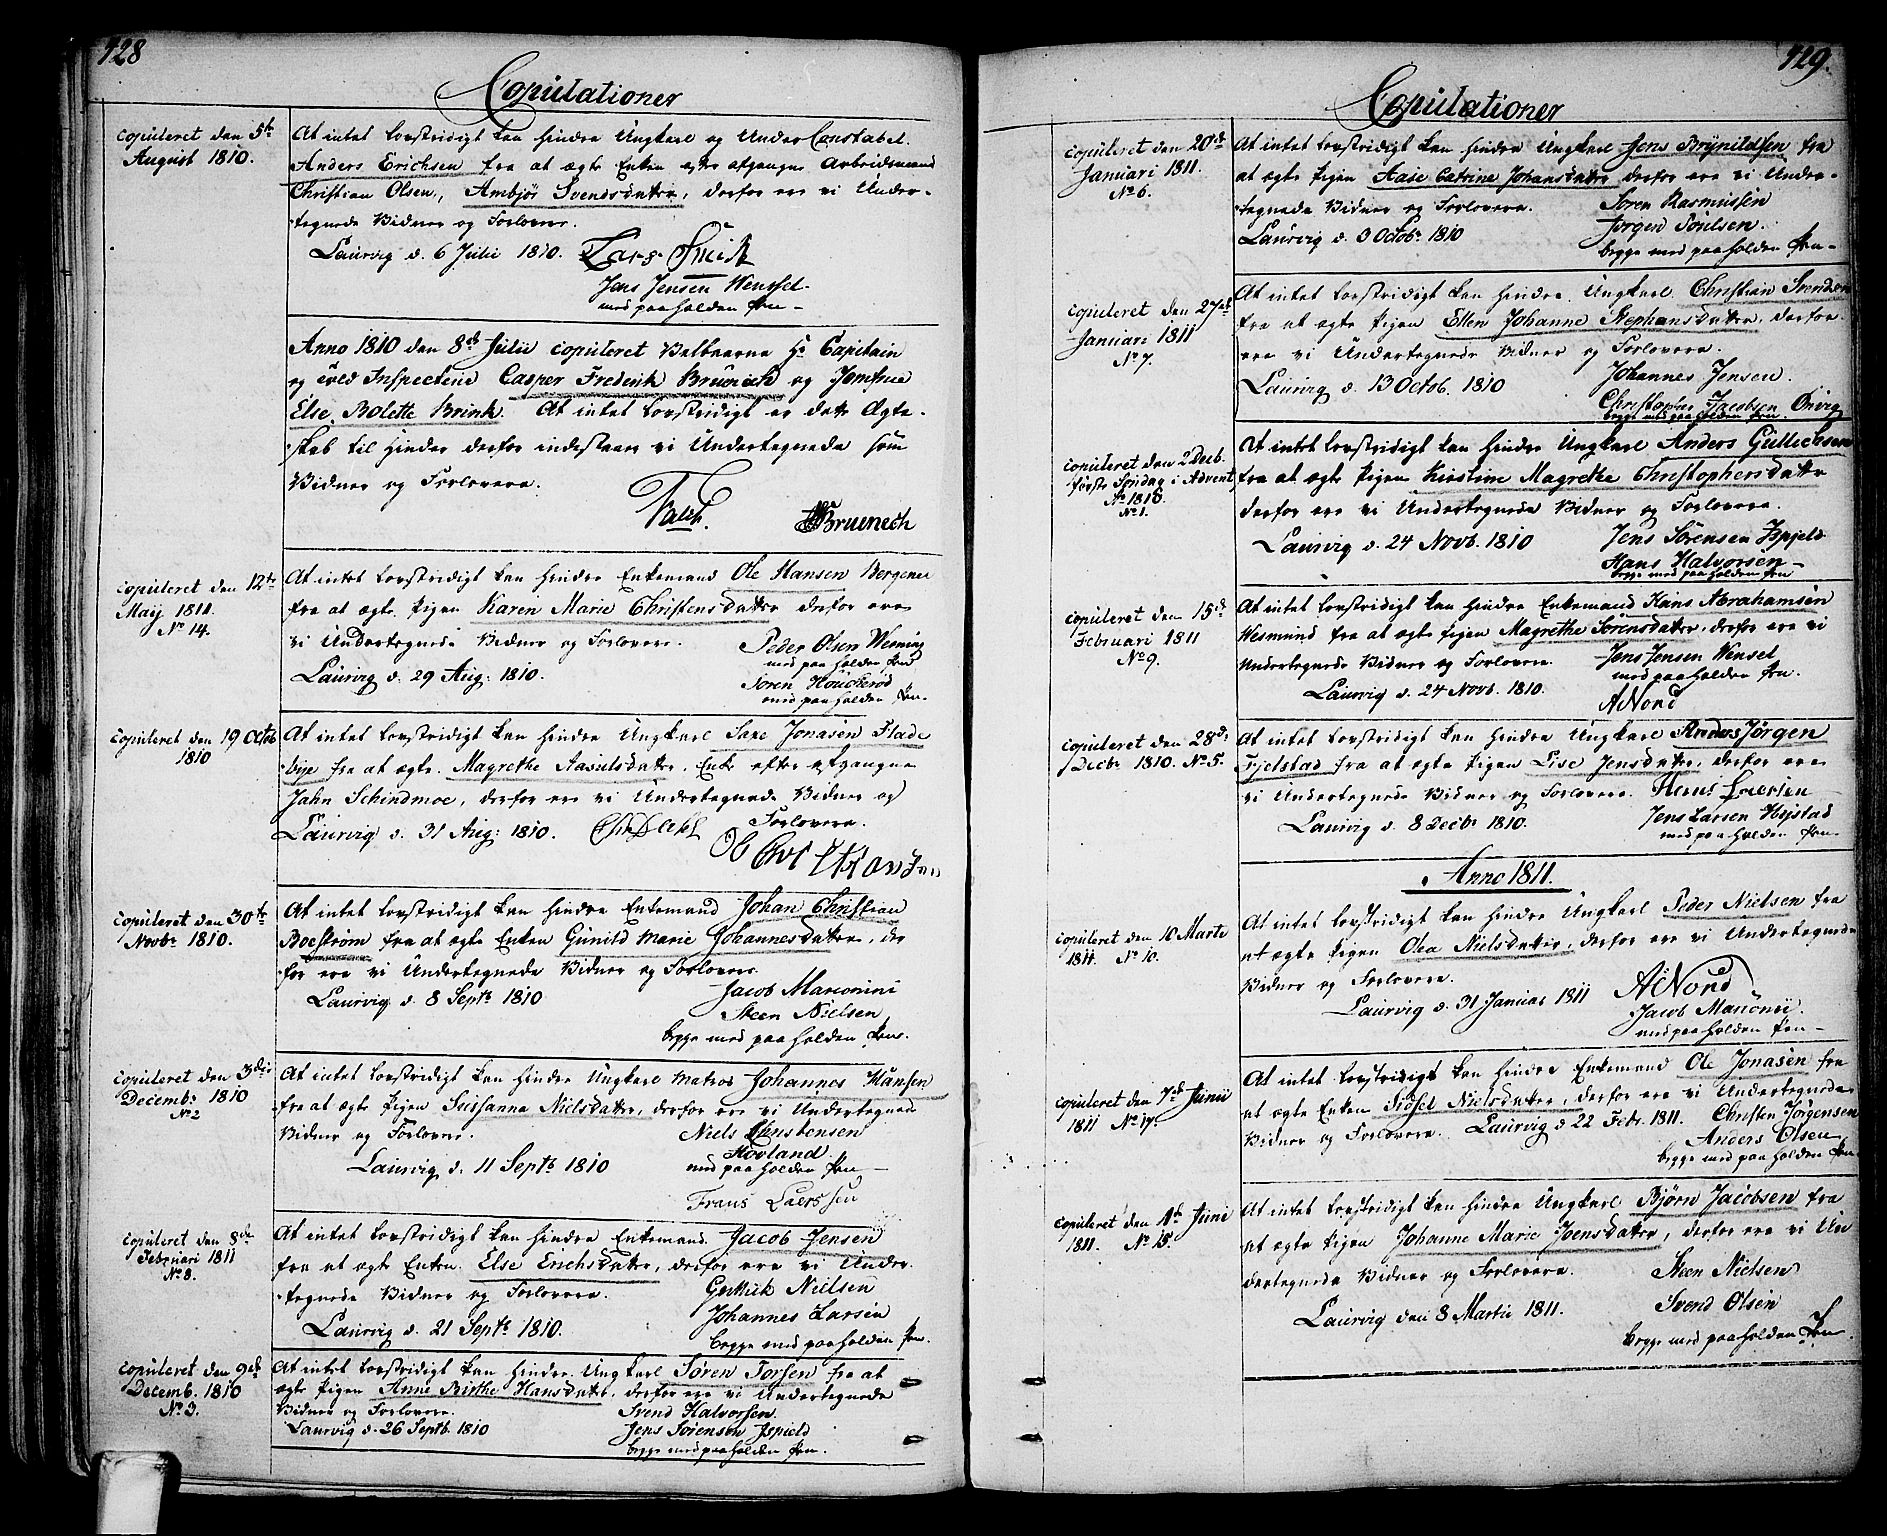 128
Copulationer
Copuleret den 5te
August 1810.
At intet lovstridigt kan hindre Ungkarl og Under Constabel
Anders Erichsen fra at ægte Enken efter afgangne Arbeidsmand
Christian Olsen, Ambjør Svendsdatter, derfor ere vi Under-
tegnede Vidner og Forlovere.
Laurvig d. 6 Julii 1810.
Jens Jensen Wenssel
med paaholden Pen
Anno 1810 den 8de Julii copuleret Velbaarne Hr Capitain
og Inspecteur Casper Frederik Brunich og Jomfrue
Else Bolette Brink. At intet lovstridigt er dette Ægte-
skab til Hinder derfor indestaar vi Undertegnede som
Vidner og Forlovere.
Falck.
Bruenech
copuleret den 12te
Maij 1811.
No 14.
At intet lovstridigt kan hindre Enkemand Ole Hansen Bergene
fra at ægte Pigen Karen Marie Christensdatter derfor ere
vi Undertegnede Vidner og Forlovere.
Peder Olsen
med paaholden Pen
Laurvig d. 29 Aug: 1810.
Søren
med paaholden Pen
copuleret den 19 Octob
1810
At intet lovstridigt kan hindre Ungkarl Saxe Jonasen Flade
vije fra at ægte Magrethe Aasulsdatter, Enke efter afgangne
Jahn Schindmoe, derfor ere vi Undertegnede Vidner og
Forlovere.
Laurvig d. 31 Aug: 1810.
copuleret den 30te
Novbr 1810.
At intet lovstridigt kan hindre Enkemand Johan Christian
Boestrøm fra at ægte Enken Gunild Marie Johannesdatter, der
for ere vi Undertegnede Vidner og Forlovere
Laurvig d. 8 Septb 1810
Jacob Marconini
Steen Nielsen
begge med paaholden Pen.
copuleret den 3die
Decembr 1810
No 2
At intet lovstridigt kan hindre Ungkarl Matros Johannes Hansen
fra at ægte Pigen Susanna Nielsdatter, derfor ere vi Undertegnede
Vidner og Forlovere.
Niels Christensen
Hovland
Laurvig d. 11 Septb 1810
med paaholden Pen
Frans Laerssen
copuleret den 8de
Februari 1811
No 8.
At intet lovstridigt kan hindre Enkemand Jacob Jensen
fra at ægte Enken Else Erichsdatter, derfor ere vi Under-
tegnede Vidner og Forlovere.
Gulluk Nielsen
Johannes Larsen
Laurvig d. 21 Septb 1810.
begge med paaholden Pen.
copuleret den 9de
Decemb. 1810
No 3.
At intet lovstridigt kan hindre Ungkarl Søren Torsen fra at
ægte Pigen Anne Birthe Hansdatter, derfor ere vi Undertegnede
Vidner og Forlovere.
Svend Halvorsen
Laurvig d. 26 Septb 1810
Jens Sørensen Ispield
begge med paaholden Pen.
129.
Copulationer
copuleret den 20de
Januari 1811.
No 6.
At intet lovstridigt kan hindre Ungkarl Jens Brynildsen fra
at ægte Pigen Aase Catrine Johansdatter derfor ere vi Under-
tegnede Vidner og Forlovere.
Soren Rasmussen
Laurvig d. 3 Octobr 1810
Jørgen Poulsen
begge med paaholden Pen
copuleret den 27de
Januari 1811
No 7.
At intet lovstridigt kan hindre Ungkarl Christian Svendsen
fra at ægte Pigen Ellen Johanne Stephansdatter, derfor
ere vi Undertegnede Vidner og Forlovere.
Johannes Jensen
Laurvig d. 13 Octob. 1810
Christopher Jacobsen
begge med paaholden Pen.
copuleret den 2 Decb.
første Søndag i Advent
Ao 1810
No 1.
At intet lovstridigt kan hindre Ungkarl Anders Gullichsen
fra at ægte Pigen Kirstine Magrethe Christophersdatter
derfor ere vi Undertegnede Vidner og Forlovere.
Jens Sørensen Ispjeld
Laurvig d. 24 Novb. 1810
Hans Halvorsen
begge med paaholden Pen
copuleret den 15de
Februari 1811
No 9.
At intet lovstridigt kan hindre Enkemand Hans Abrahamsen
Wesmund fra at ægte Pigen Magrethe Sørensdatter, derfor ere vi
Undertegnede Vidner og Forlovere.
Jens Jensen Wensel
med paaholden Pen.
Laurvig d. 24 Novb. 1810.
A Nord
copuleret den 28de
Decbr 1810. No 5.
At intet lovstridigt kan hindre Ungkarl Anders Jørgen
Fjelstad fra at ægte Pigen Lise Jensdatter, derfor ere
vi Undertegnede Vidner og Forlovere.
Hans Laersen
Laurvig d. 8 Decbr 1810.
Jens Larsen Højstad
med paaholden Pen
Anno 1811.
copuleret den 10 Marti
1811. No 10.
At intet lovstridigt kan hindre Ungkarl Peder Nielsen fra
at ægte Pigen Olea Nielsdatter, derfor ere vi Undertegnede
Vidner og Forlovere.
A Nord
Laurvig d. 31 Januar 1811
Jacob Marconii
med paaholden Pen
copuleret den 7de Junii
1811 No 17.
At intet lovstridigt kan hindre Enkemand Ole Jonasen fra
at ægte Enken Sidsel Nielsdatter, derfor ere vi Undertegnede
Vidner og Forlovere. Laurvig d 22 Febr. 1811.
Christen Jørgensen
Anders Olsen
begge med paaholden Pen
copuleret den 1ste Juni
1811. No 15.
At intet lovstridigt kan hindre Ungkarl Bjørn Jacobsen fra
at ægte Pigen Johanne Marie Joensdatter, derfor ere vi Un
dertegnede Vidner og Forlovere.
Steen Nielsen
Svend Olsen
Laurvig den 8 Martii 1811.
begge med paaholden Pen.